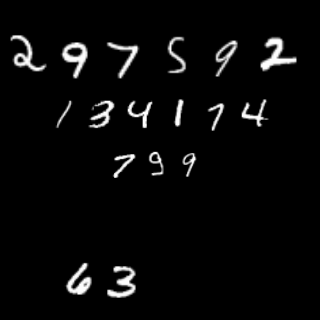 297592
134174
799
63